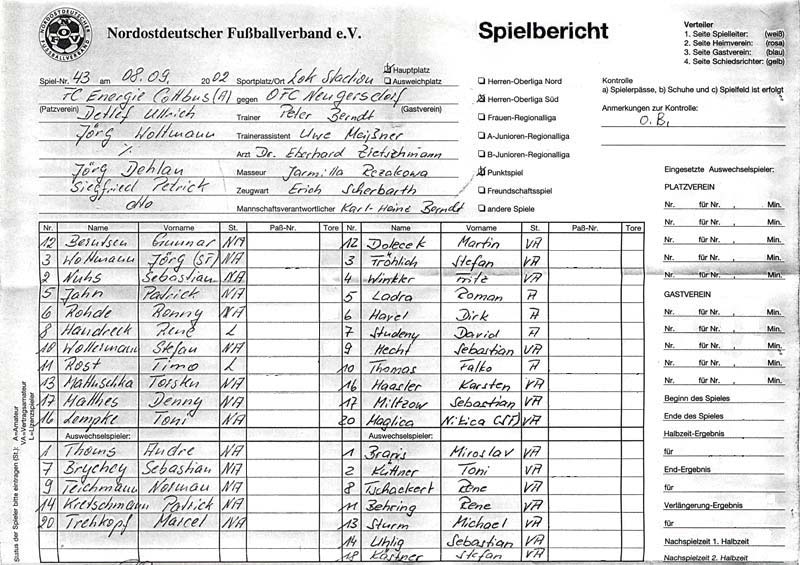 NORDOSTDEUTSCHER FUSSBALLVERBAND NOFV
Nordostdeutscher Fußballverband e.V.
Spielbericht
Verteiler
1. Seite Spielleiter: (weiß)
2. Seite Heimverein: (rosa)
3. Seite Gastverein: (blau)
4. Seite Schiedsrichter: (gelb)
Spiel-Nr. 43 am 08.09. 2002 Sportplatz/Ort Lok Stadion Hauptplatz
Ausweichplatz
FC Energie Cottbus (A) gegen OFC Neugersdorf
(Platzverein) (Gastverein)
Detlef Ullrich Trainer Peter Berndt
Jörg Woltmann Trainerassistent Uwe Meißner
% Arzt Dr. Eberhard Zietschmann
Jörg Dehlan Masseur Jarmilla Rezakowa
Siegfried Petrick Zeugwart Erich Scherbarth
dto Mannschaftsverantwortlicher Karl-Heinz Berndt
Herren-Oberliga Nord
Herren-Oberliga Süd
Frauen-Regionalliga
A-Junioren-Regionalliga
B-Junioren-Regionalliga
Punktspiel
Freundschaftsspiel
andere Spiele
Kontrolle
a) Spielerpässe, b) Schuhe und c) Spielfeld ist erfolgt
Anmerkungen zur Kontrolle:
O.B.
Nr. Name Vorname St. Paß-Nr. Tore Nr. Name Vorname St. Paß-Nr. Tore
12 Gunnar NA 12 Dolecek Martin VA
3 Woltmann Jörg (SF) NA 3 Fröhlich Stefan VA
2 Nuhs Sebastian NA 4 Winkler Fritz VA
5 Jahn Patrick NA 5 Ladra Roman A
6 Rohde Ronny NA 6 Havel Dirk A
8 Handreck René L 7 Studeny David A
10 Woltermann Stefan NA 9 Hecht Sebastian VA
11 Rost Timo L 10 Thomas Falko A
13 Mattuschka Torsten NA 16 Haasler Karsten VA
17 Matthes Denny NA 17 Miltzow Sebastian VA
16 Lempke Toni NA 20 Maglica Nikica (SF) VA
Auswechselspieler: Auswechselspieler:
1 Thoms Andre NA 1 Brapis Miroslav VA
7 Brychcy Sebastian NA 2 Küttner Toni VA
9 Teichmann Norman NA 8 Tschackert Rene VA
14 Kretschmann Patrick NA 11 Behring Rene VA
20 Trehkopf Marcel NA 13 Sturm Michael VA
14 Uhlig Sebastian VA
18 Kästner Stefan VA
Status der Spieler bitte eintragen (St.): A=Amateur
VA=Vertragsamateur
L=Lizenzspieler
Eingesetzte Auswechselspieler:
PLATZVEREIN
Nr. für Nr. , Min.
Nr. für Nr. , Min.
Nr. für Nr. , Min.
Nr. für Nr. , Min.
GASTVEREIN
Nr. für Nr. , Min.
Nr. für Nr. , Min.
Nr. für Nr. , Min.
Nr. für Nr. , Min.
Beginn des Spieles
Ende des Spieles
Halbzeit-Ergebnis
für
End-Ergebnis
für
Verlängerung-Ergebnis
für
Nachspielzeit 1. Halbzeit
Nachspielzeit 2. Halbzeit